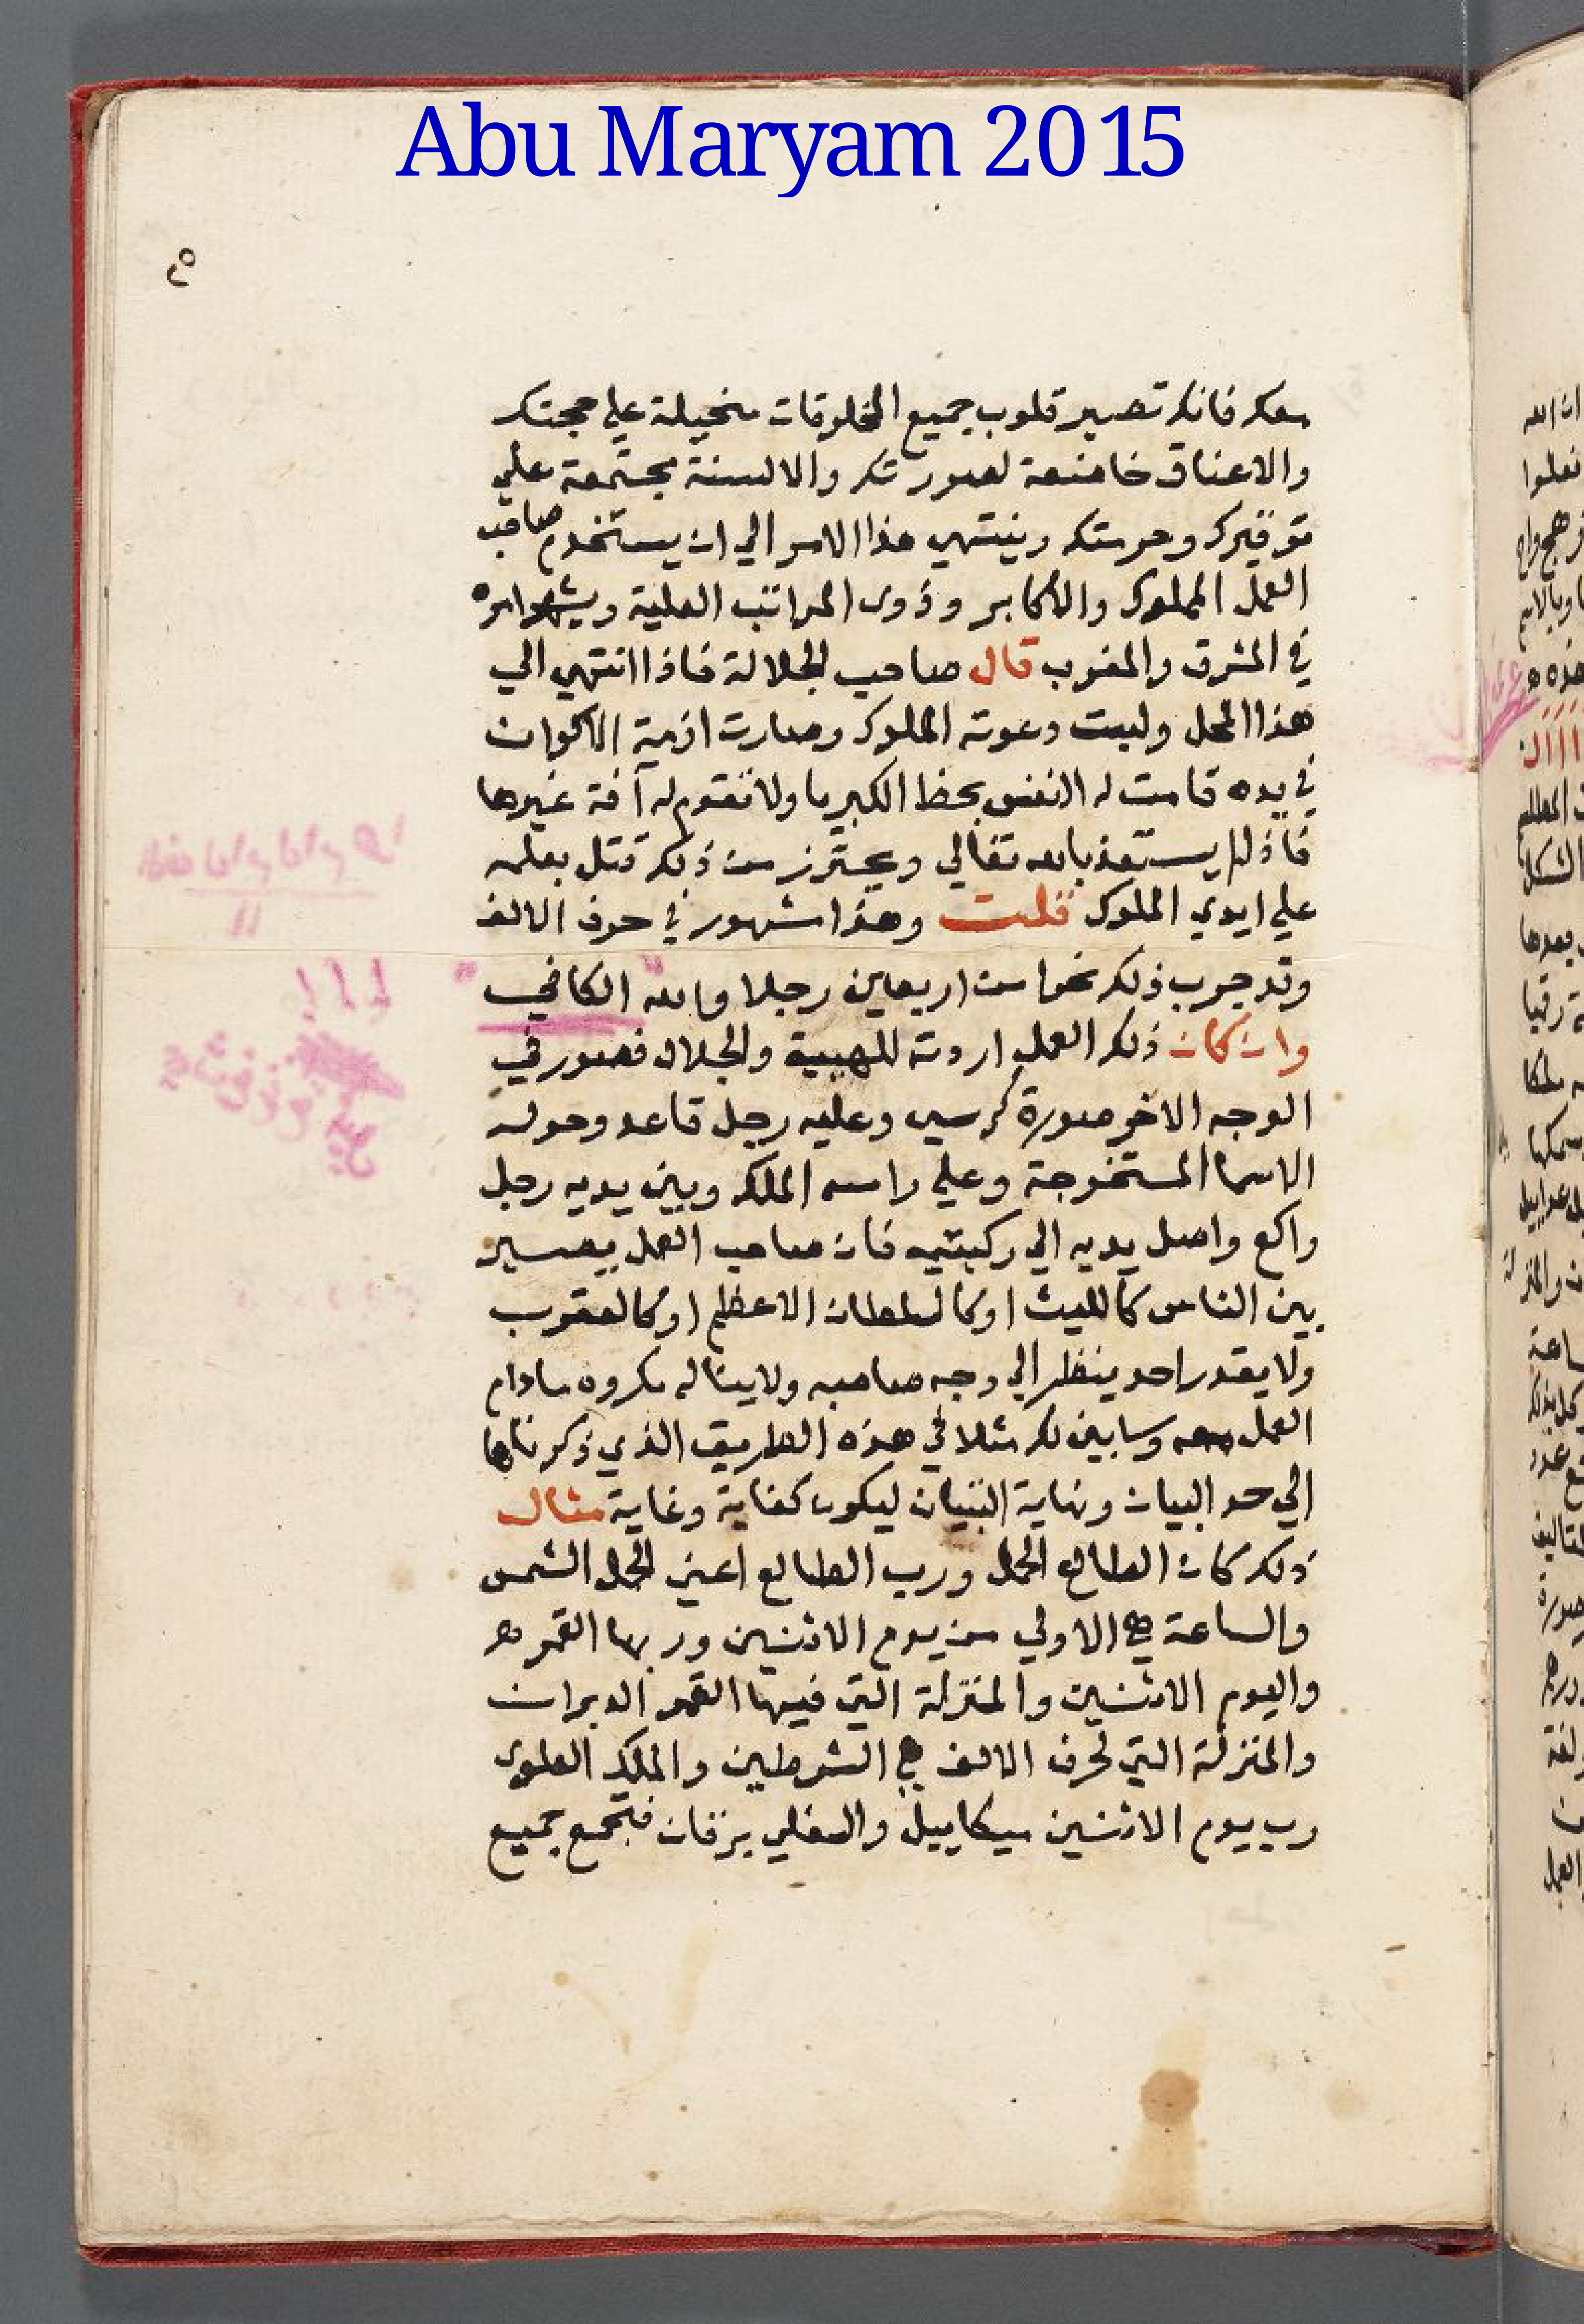 Abu Maryam 2015
٢٥
معك فانك تصير قلوب جميع المخلوقات منخيلة علي محبتك
والاعناق خاضعة لصورتك والالسنة مجتمعة علي
توقيرك وحرمتك وينتهي هذا الامر الي ان يستخدم صاحب
العمل الملوك والاكابر وذوي المراتب العلية ويشهر امره
في المشرق والمغرب قال صاحب الجلالة فاذا انتهي الي
هذا المحل ولبت دعوته الملوك وصارت ازمة الاكوان
في يده قامت له الانفس بحظ الكبريا ولا تقوم له آفة غيرها
فاذا لم يستعذ بالله تعالي ويحترز من ذلك قتل بعلمه
علي ايدي الملوك قلت وهذا مشهور في حرف الالف
وقد جرب ذلك نحوا من اربعين رجلا والله الكافي
وان كان ذلك العمل اردته للهيبة والجلال فصور في
الوجه الاخر صورة كرسي وعليه رجل قاعد وحوله
الاسما المستخرجة وعلي راسه الملك وبين يديه رجل
راكع واصل يديه الي ركبتيه فان صاحب العمل يصير
بين الناس كالليث او كالسلطان الاعظم او كالعقرب
ولا يقدر احد ينظر الي وجه صاحبه ولا يناله مكروه مادام
العمل معه وسابين لك مثلا في هذه الطريق الذي ذكرناها
الي حد البيان ونهاية التبيان ليكون كفاية وغاية مثال
ذلك كان الطالع الحمل ورب الطالع اعني الحمل الشمس
والساعة هي الاولي من يوم الاثنين وربها القمر
واليوم الاثنين والمنزلة التي فيها القمر الدبران
والمنزلة التي لحرف الالف هي الشرطين والملك العلوي
رب يوم الاثنين ميكاييل والسفلي بزقان فتجمع جميع